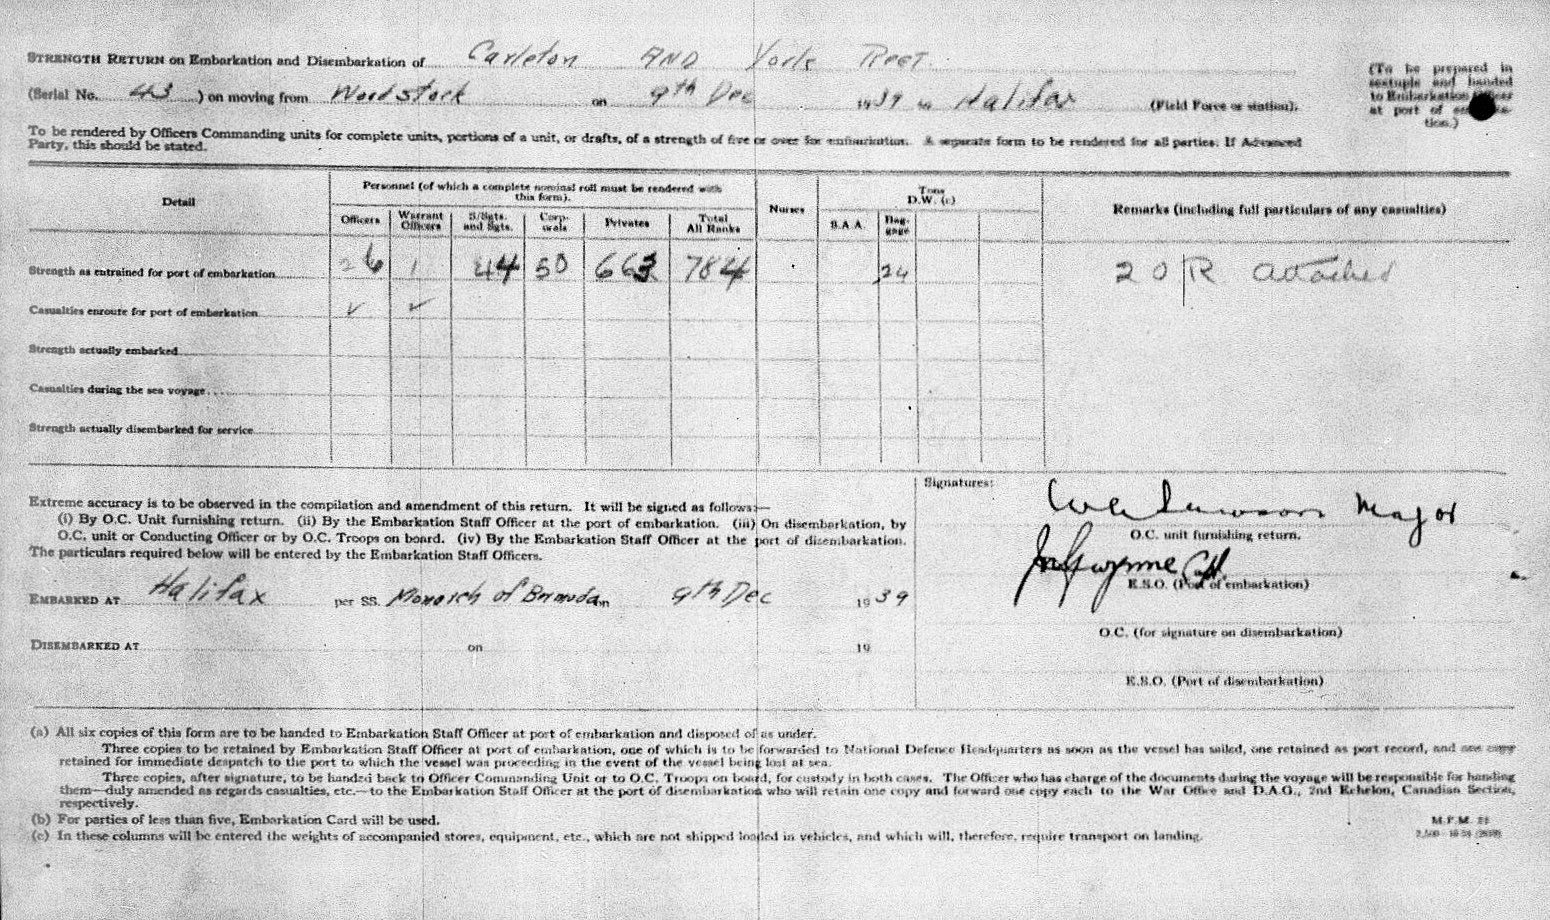 STRENGTH RETURN on Embarkation and Disembarkation of Carleton AND York REGT.
(Serial No. 43 ) on moving from Woodstock on 9th Dec 1939 to Halifax (Field Force or station).
(To be prepared in
sextuple and handed
to Embarkation Officer
at port of embarka-
tion.)
To be rendered by Officers Commanding units for complete units, portions of a unit, or drafts, of a strength of five or over for embarkation. A separate form to be rendered for all parties. If Advanced
Party, this should be stated.
Detail
Personnel (of which a complete nominal roll must be rendered with
this form).
Officers
Warrant
Officers
S/Sgts.
and Sgts.
Corp-
orals
Privates
Total
All Ranks
Nurses
Tons
D.W. (c)
S.A.A.
Bag-
gage
Remarks (including full particulars of any casualties)
Strength as entrained for port of embarkation 26 1 44 50 663 784 24 2 OR attached
Casualties enroute for port of embarkation ✓ ✓
Strength actually embarked
Casualties during the sea voyage
Strength actually disembarked for service
Extreme accuracy is to be observed in the compilation and amendment of this return. It will be signed as follows:—
(i) By O.C. Unit furnishing return. (ii) By the Embarkation Staff Officer at the port of embarkation. (iii) On disembarkation, by
O.C. unit or Conducting Officer or by O.C. Troops on board. (iv) By the Embarkation Staff Officer at the port of disembarkation.
The particulars required below will be entered by the Embarkation Staff Officers.
EMBARKED AT Halifax per SS. Monarch of Bermuda on 9th Dec 1939
DISEMBARKED AT on 19
Signatures:
Lawson Major
O.C. unit furnishing return.
Gwynne
E.S.O. (Port of embarkation)
O.C. (for signature on disembarkation)
E.S.O. (Port of disembarkation)
(a) All six copies of this form are to be handed to Embarkation Staff Officer at port of embarkation and disposed of as under.
Three copies to be retained by Embarkation Staff Officer at port of embarkation, one of which is to be forwarded to National Defence Headquarters as soon as the vessel has sailed, one retained as port record, and one copy
retained for immediate despatch to the port to which the vessel was proceeding in the event of the vessel being lost at sea.
Three copies, after signature, to be handed back to Officer Commanding Unit or to O.C. Troops on board, for custody in both cases. The Officer who has charge of the documents during the voyage will be responsible for handing
them—duly amended as regards casualties, etc.—to the Embarkation Staff Officer at the port of disembarkation who will retain one copy and forward one copy each to the War Office and D.A.G., 2nd Echelon, Canadian Section,
respectively.
(b) For parties of less than five, Embarkation Card will be used.
(c) In these columns will be entered the weights of accompanied stores, equipment, etc., which are not shipped loaded in vehicles, and which will, therefore, require transport on landing.